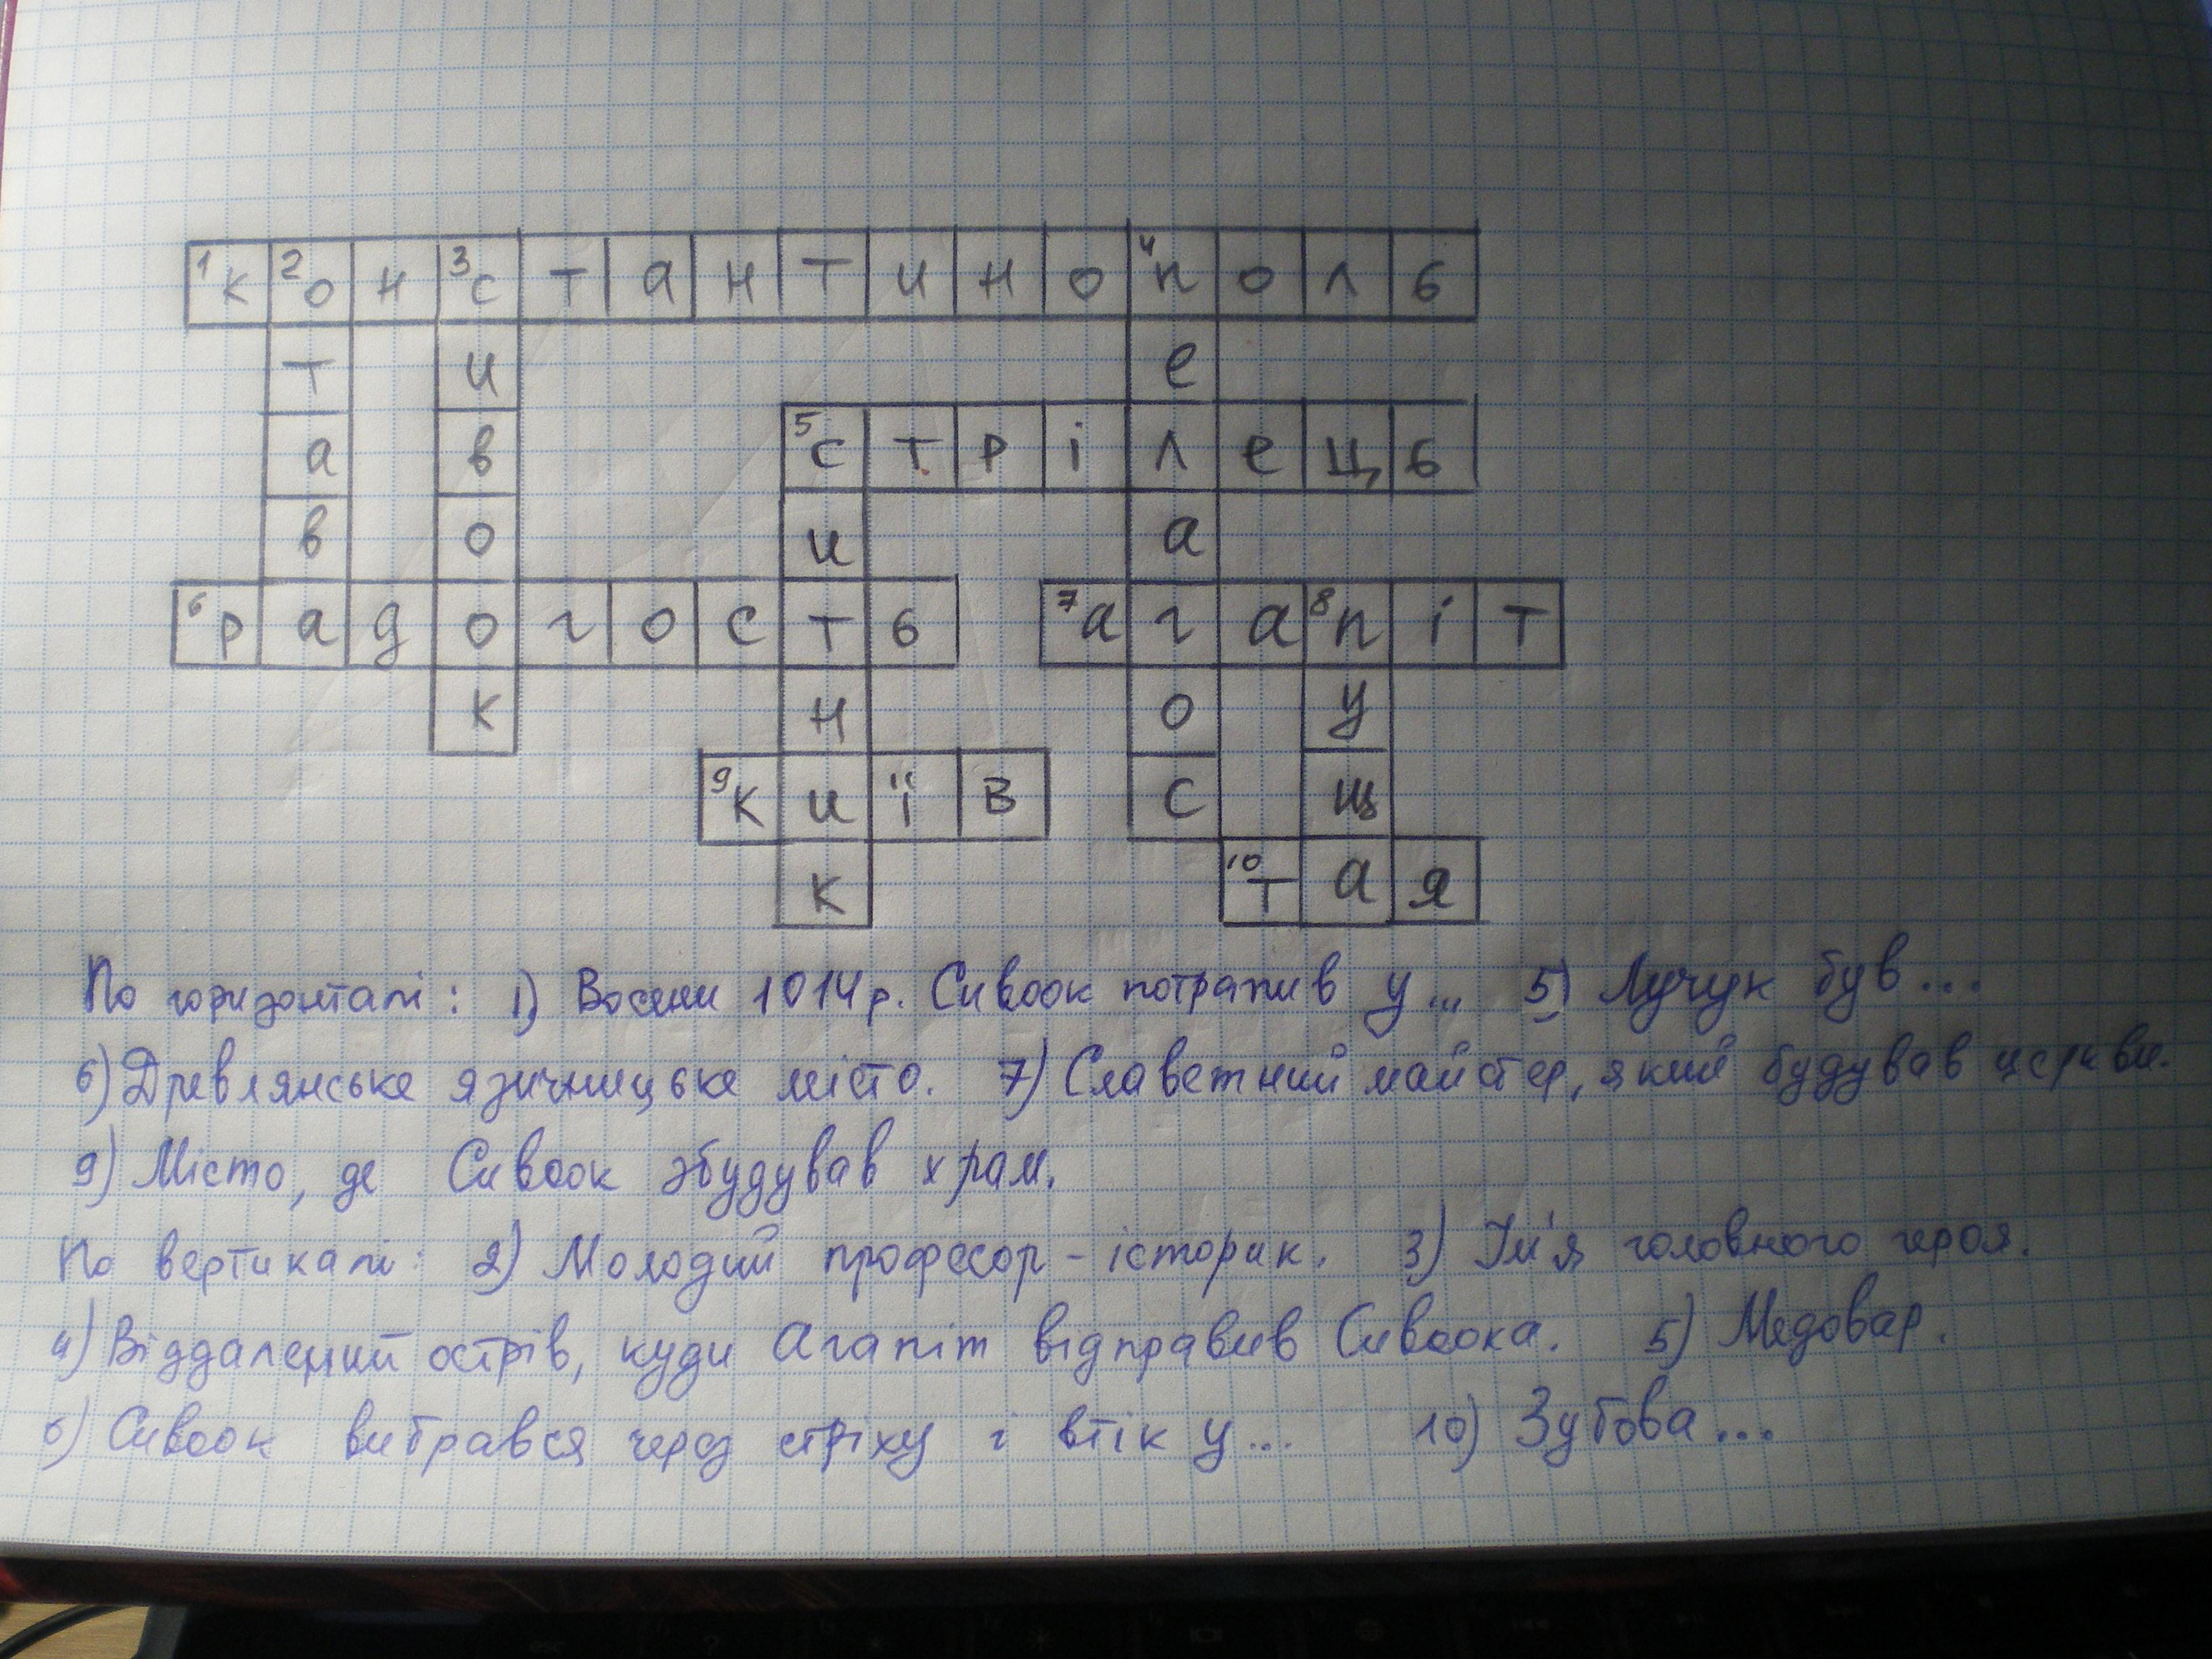 1 к 2 о н 3 с т а н т и н о 4 п о л ь
т и е
а в 5 с т р і л е ц ь
в о и а
6 р а д о г о с т ь 7 а г а 8 п і т
к н о у
9 к и ї в с щ
к 10 т а я
По горизонталі: 1) Восени 1014р. Сивоок потрапив у... 5) Лучук був...
6) Древлянське язичницьке місто. 7) Славетний майстер, який будував церкви.
9) Місто, де Сивоок збудував храм.
По вертикалі: 2) Молодий професор-історик. 3) Ім'я головного героя.
4) Віддалений острів, куди Агапіт відправив Сивоока. 5) Медовар.
8) Сивоок вибрався через стріху і втік у... 10) Зубова...